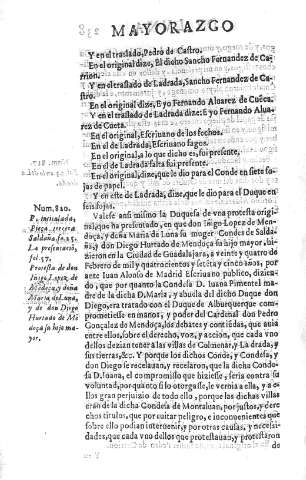 MAYORAZGO
Y en el traslado, Pedro de Castro.
En el original dize, El dicho Sancho Fernandez de Carrion.
Y en el traslado de Ladrada, Sancho Fernandez de Castro.
En el original dize, E yo Fernando Aluarez de Cuēca.
Y en el traslado de Ladrada dize: E yo Fernando Aluarez de Cueta.
En el original, Escriuano de los fechos.
En el de Ladrada, Escriuano fagos.
En el original, a lo que dicho es, fui presente.
En el de Ladrada falta fui presente.
En el original, dize, que le dio para el Conde en siete fajas de papel.
Y en este de Ladrada, dize, que le dio para el Duque en seis fojas.
Num. 820.
P. intitulada, Pieça tercera Saldaña, n. 25.
La presentaciō, fol. 57.
Protesta de don Iñigo Lopez de Mēdoça, y doña Maria de Luna, y de don Diego Hurtado de Mēdoça su hijo mayor.
Valese assi mismo la Duquesa de vna protesta original, que ha presentado, en que don Iñigo Lopez de Mendoça, y doña Maria de Luna su muger Condes de Saldaña, y don Diego Hurtado de Mendoça su hijo mayor, hizieron en la Ciudad de Guadalajara, a veinte y quatro de Febrero de mil y quatrocientos y setēta y cinco años, por ante Iuan Alonso de Madrid Escriuano publico, diziendo, que por quanto la Condesa D. Iuana Pimentel madre de la dicha D. Maria, y abuela del dicho Duque don Diego, era tratado con el Duque de Alburquerque comprometiesse en manos, y poder del Cardenal don Pedro Gonçalez de Mendoça, los debates y contiēdas, que auia entre ellos, sobre el derecho, voz, y accion, que cada vno dellos dezian tener a las villas de Colmenar, y La drada, y sus tierras, &c. Y porque los dichos Conde, y Condesa, y don Diego se recelauan, y recelaron, que la dicha Condesa D. Iuana, el compromisso que hiziesse, seria contra su voluntad, por quanto si lo otorgasse, le vernia a ella, y a ellos gran perjuizio de todo ello, porque las dichas villas erān de la dicha Condesa de Montaluan, por justos, y derechos titulos, que por euitar peligro, e inconuenientes que sobre ello podian interuenir, y por otras causas, y necessidades, que cada vno dellos que protestauan, y protestaron
de